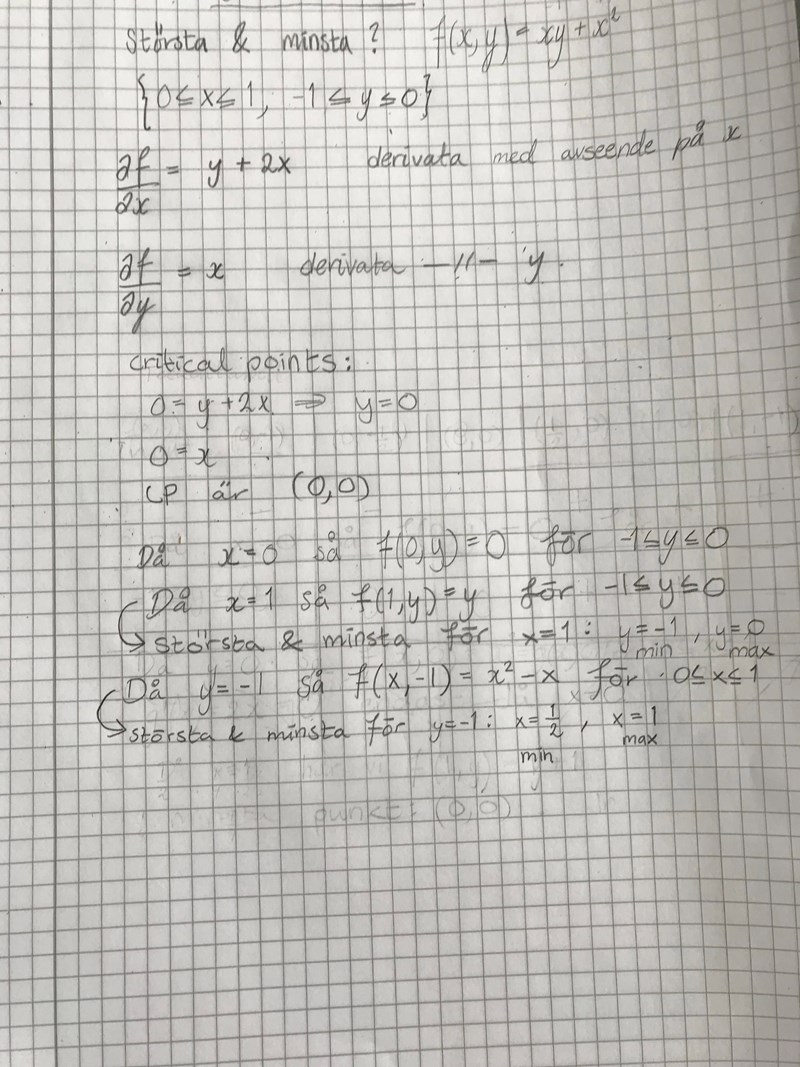 Största & minsta? f(x,y) = xy + x²
{0 ≤ x ≤ 1, -1 ≤ y ≤ 0}
∂f/∂x = y + 2x derivata med avseende på x
∂f/∂y = x derivata —〃— y.
critical points:
0 = y + 2x ⇒ y = 0
0 = x
CP är (0,0)
Då x = 0 så f(0,y) = 0 för -1 ≤ y ≤ 0
Då x = 1 så f(1,y) = y för -1 ≤ y ≤ 0
största & minsta för x = 1: y = -1 min, y = 0 max
Då y = -1 så f(x,-1) = x² - x för 0 ≤ x ≤ 1
största & minsta för y = -1: x = 1/2 min, x = 1 max
punkt: (0,0)